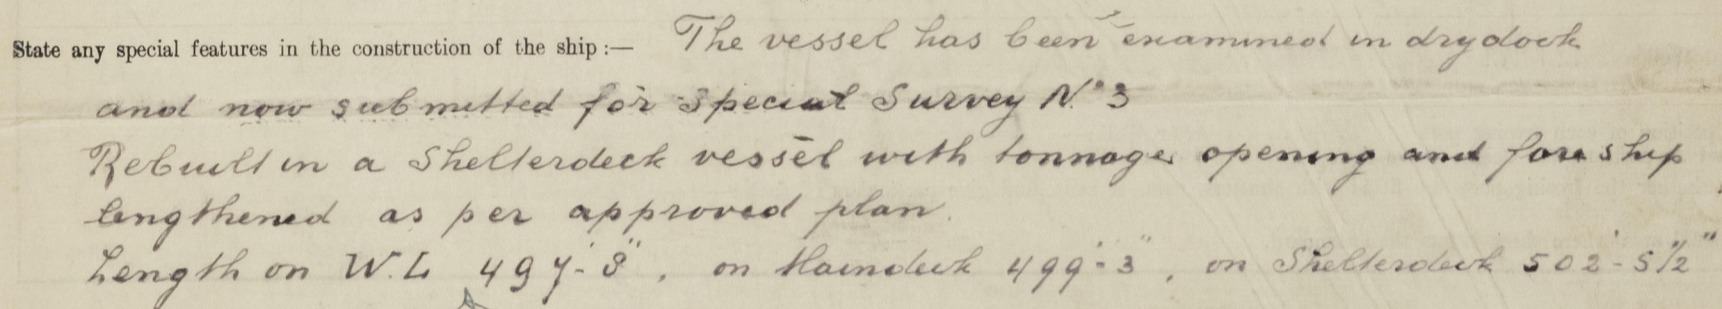 State any special features in the construction of the ship :— The vessel has been examined in drydock
and now submitted for Special Survey No 3
Rebuilt in a Shelterdeck vessel with tonnage opening and foreship
lengthened as per approved plan.
Length on W.L 497'-8", on Maindeck 499'-3", on Shelterdeck 502'-5 1/2"